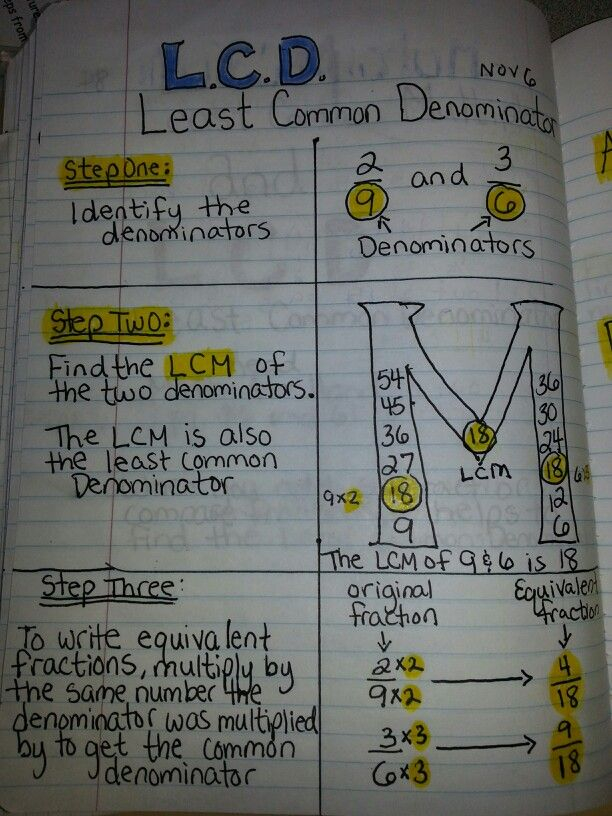 L.C.D.
NOV 6
Least Common Denominator
Step One:
Identify the
denominators
2/9 and 3/6
Denominators
Step Two:
Find the LCM of
the two denominators.
The LCM is also
the least common
Denominator
54
45
36
27
9x2 18
9
18
LCM
36
30
24
18
12
6
The LCM of 9 & 6 is 18
Step Three:
To write equivalent
fractions, multiply by
the same number the
denominator was multiplied
by to get the common
denominator
original
fraction
Equivalent
fraction
2x2
9x2
4
18
3x3
6x3
9
18